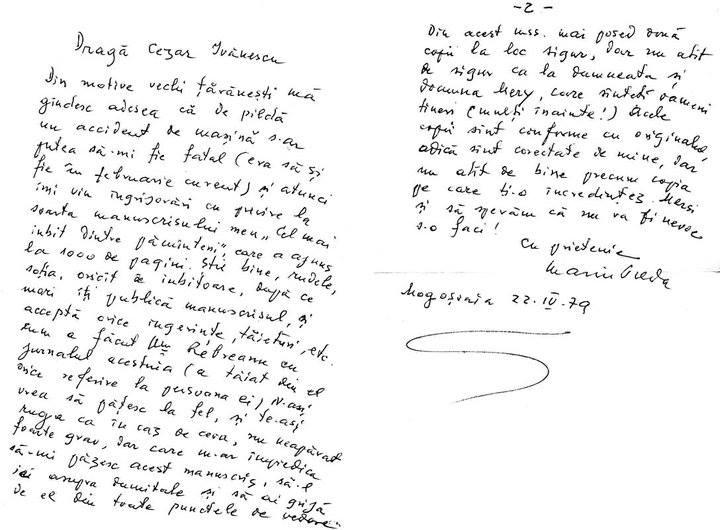 Dragă Cezar Ivănescu
Din motive vechi țărănești mă
gîndesc adesea că de pildă
un accident de mașină s-ar
putea să-mi fie fatal (era să și
fie în februarie curent) și atunci
îmi vin îngrijorări cu privire la
soarta manuscrisului meu „Cel mai
iubit dintre pămînteni", care a ajuns
la 1000 de pagini. Știi bine, rudele,
soția, oricît de iubitoare, după ce
mori îți publică manuscrisul, și
acceptă orice ingerințe, tăieturi, etc.
cum a făcut Rebreanu cu
jurnalul acestuia (a tăiat din el
orice referire la persoana ei) N-ași
vrea să pățesc la fel, și te-ași
ruga ca în caz de ceva, nu neapărat
foarte grav, dar care m-ar împiedica
să-mi păzesc acest manuscris, să-l
iei asupra dumitale și să ai grijă
de el din toate punctele de vedere
- 2 -
Din acest mss. mai posed două
copii la loc sigur, dar nu atît
de sigur ca la dumneata și
doamna Mery, care sînteți oameni
tineri (mulți înainte!) Acele
copii sînt conforme cu originalul,
adică sînt corectate de mine, dar
nu atît de bine precum copia
pe care ți-o încredințez. Mersi
și să sperăm că nu va fi nevoe
s-o faci!
Cu prietenie
Marin Preda
Mogoșoaia 22.IV.79